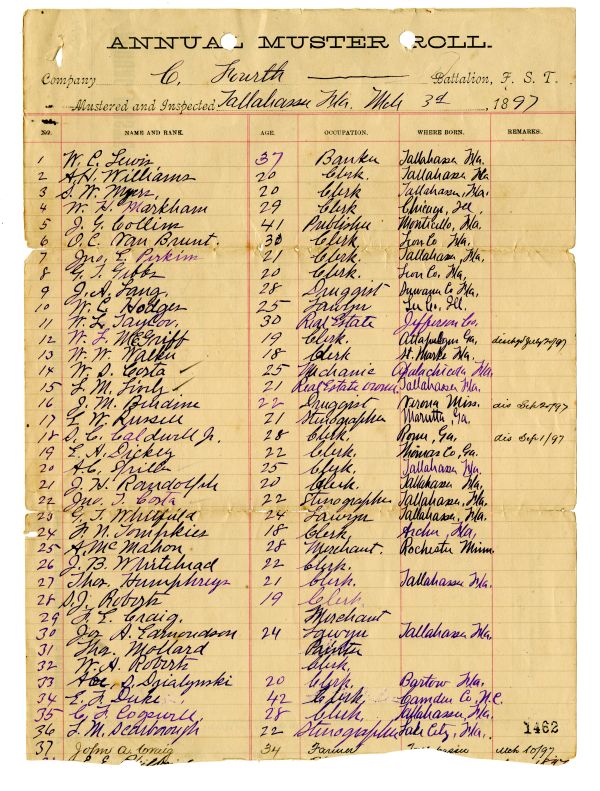 ANNUAL MUSTER ROLL.
Company C. Fourth Battalion, F. S. T.
Mustered and Inspected Tallahassee Fla. Mch 3d, 1897
NO. NAME AND RANK. AGE. OCCUPATION. WHERE BORN. REMARKS.
1 W. C. Lewis 37 Banker Tallahassee Fla.
2 A. H. Williams 20 Clerk. Tallahassee Fla
3 S. W. Myers 20 Clerk Tallahassee, Fla.
4 W. H. Markham 29 Clerk Chicago, Ill.
5 J. G. Collins 41 Publisher Monticello, Fla.
6 O. C. Van Brunt. 30 Clerk Leon Co Fla.
7 Jno. L. Perkins 21 Clerk. Tallahassee, Fla.
8 G. T. Gibbs 20 Clerk. Leon Co, Fla.
9 J. A. Lang. 28 Druggist Suwanee Co Fla.
10 W. C. Hodges 25 Lawyer Lee Co, Ill.
11 W. L. Taylor. 30 Real Estate Jefferson Co.
12 W. F. McGriff 19 Clerk. Attapulgus Ga.
13 W. W. Walker 18 Clerk St. Marks Fla.
14 W. S. Costa 25 Mechanic Apalachicola Fla.
15 L. M. Lively 21 Real Estate owner, Tallahassee Fla.
16 J. M. 22 Druggist Verona Miss. dis Sep 20/97
17 L. W. Russell 21 Stenographer Marietta Ga.
18 S. C. Caldwell Jr. 28 Clerk. Rome, Ga. dis Sep 1/97
19 L. A. Dickey 22 Clerk. Thomas Co, Ga.
20 A. C. Spiller 25 Clerk. Tallahassee Fla.
21 J. H. Randolph 20 Clerk. Tallahassee Fla.
22 Jno. T. Costa 22 Stenographer Tallahassee, Fla.
23 G. T. Whitfield 24 Lawyer Tallahassee, Fla.
24 F. N. Tompkies 18 Clerk Archer, Fla,
25 A. McMahon 28 Merchant. Rochester Minn.
26 J. B. Whitehead 22 Clerk.
27 Thos. Humphreys 21 Clerk. Tallahassee Fla.
28 S. J. Roberts 19 Clerk
29 F. E. Craig. Merchant
30 Jos A. Edmondson 24 Lawyer Tallahassee Fla.
31 Tho. Mollard Painter
32 W. A. Roberts Clerk.
33 S. Dzialynski 20 Clerk. Bartow Fla.
34 E. F. Duke 42 Clerk Camden Co, N.C.
35 C. F. Cogswell 28 Clerk. Tallahassee, Fla.
36 L. M. Scarborough 22 Stenographer Lake City, Fla. 1462
37 John A. Craig 34 Farmer Tallahassee Mch 10/97